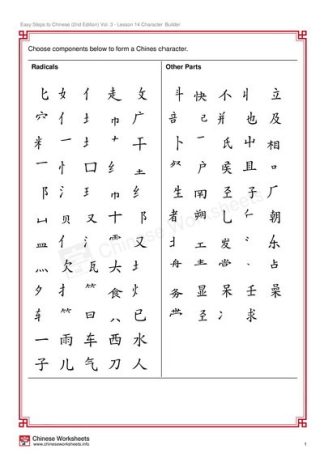 Easy Steps to Chinese (2nd Edition) Vol. 3 - Lesson 14 Character Builder
Choose components below to form a Chines character.
Radicals
Other Parts
匕 女 亻 走 攵
斗 快 不 丬 立
穴 亻 土 巾 纟
音 己 并 也 及
米 一 土 干
卜 一 氏 中 相
一 忄 口 纟
户 侯 且
阝 氵 王 巾 纟
生 子 厂
山 贝 又 十 阝
者 朔 乚 亻 朝
皿 亻 氵 一
工 发 氵 乐
灬 欠 瓦 大 土
舟 尚 占
夕 扌 食 火
务 显 呆 壬 喿
车 曰 八 已
求
一 雨 车 西 水
子 儿 气 刀 人
Chinese Worksheets
Chinese Worksheets
www.chineseworksheets.info
1